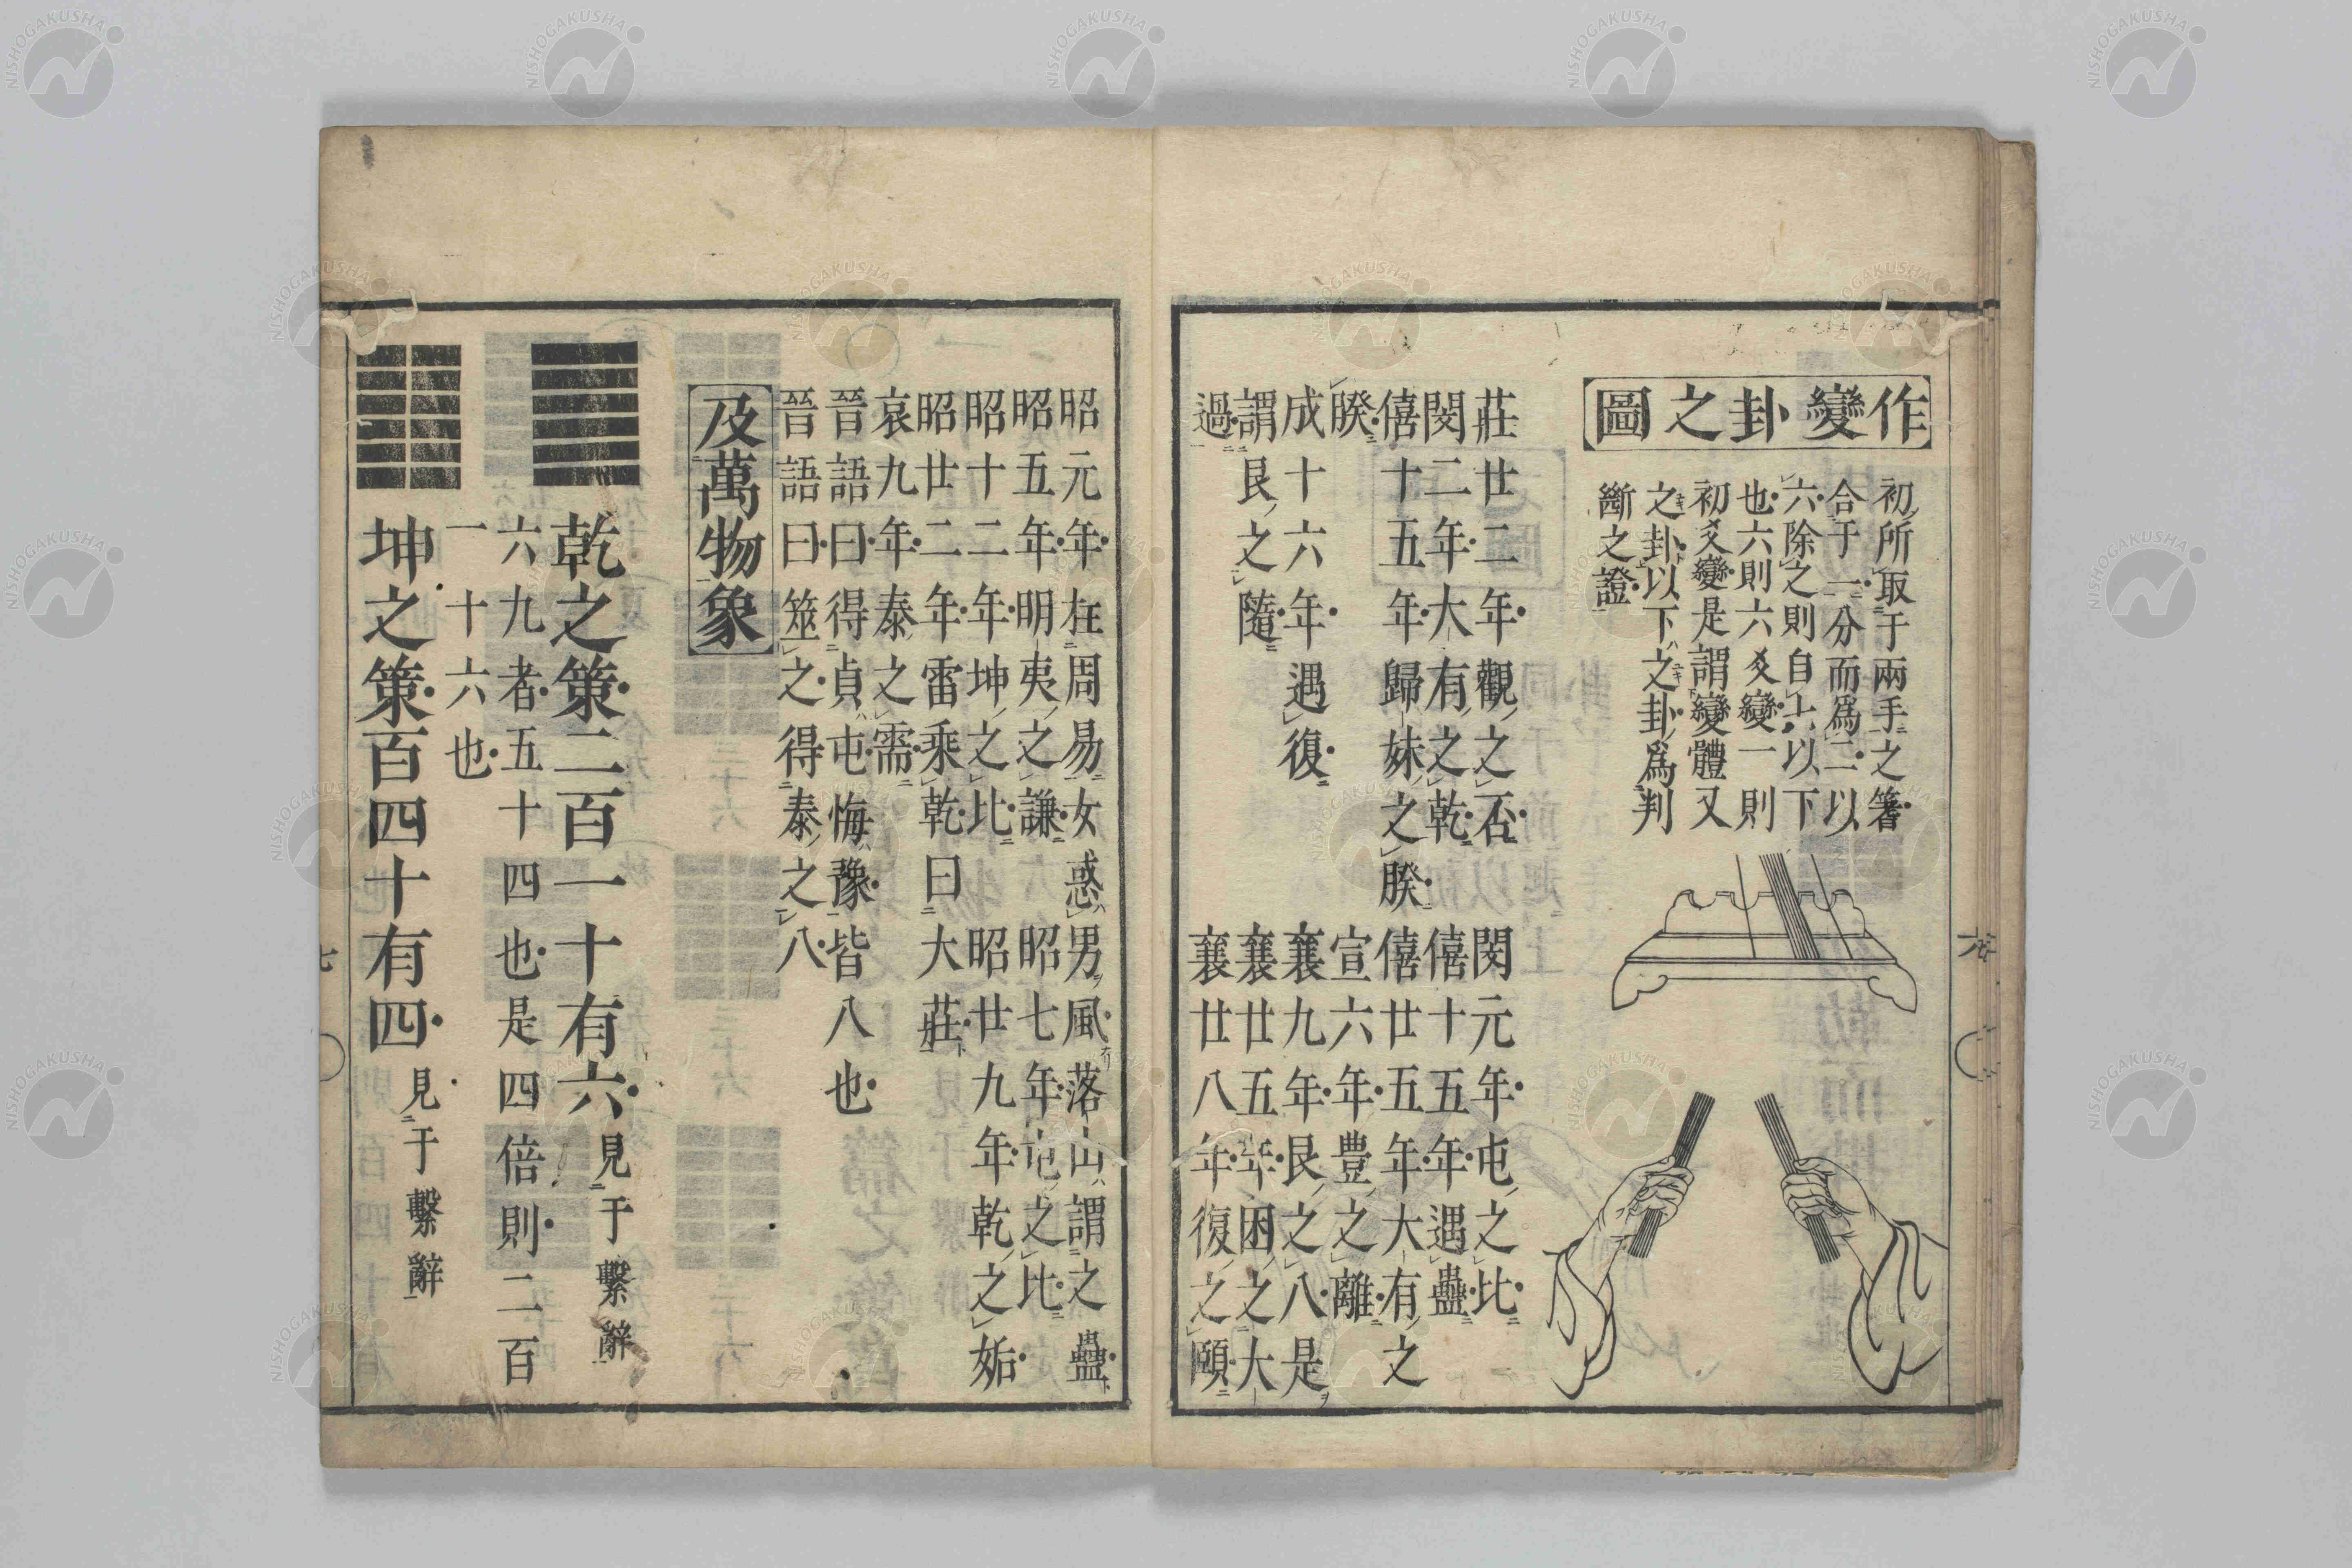 作變卦之圖
初所取于兩手之蓍
合于一分而爲二以
六除之則自六以下
也六則六爻變一則
初爻變是謂變體又
之卦以下之卦爲判
斷之證
莊廿二年觀之否
閔元年屯之比
閔二年大有之乾
僖十五年遇蠱
僖十五年歸妹之睽
僖廿五年大有之
睽
宣六年豊之離
成十六年遇復
襄九年艮之八是
謂艮之隨
襄廿五年困之大
過
襄廿八年復之頤
昭元年在周易女惑男風落山謂之蠱
昭五年明夷之謙
昭七年屯之比
昭十二年坤之比
昭廿九年乾之姤
昭廿二年雷乘乾曰大莊
哀九年泰之需
晉語曰得貞屯悔豫皆八也
晉語曰筮之得泰之八
及萬物象
乾之策二百一十有六見于繫辭
六九者五十四也是四倍則二百
一十六也
坤之策百四十有四見于繫辭
六
七
NISHOGAKUSHA